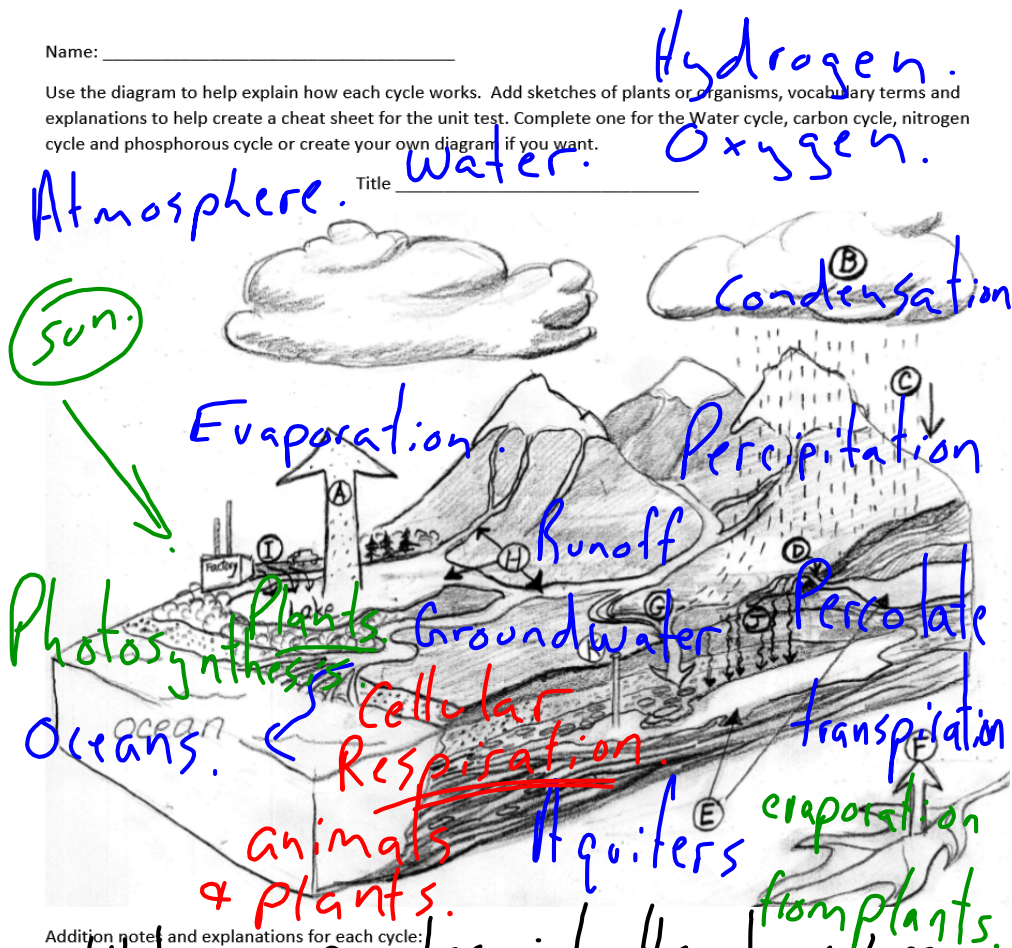 Hydrogen.
Name:
Use the diagram to help explain how each cycle works. Add sketches of plants or organisms, vocabulary terms and
explanations to help create a cheat sheet for the unit test. Complete one for the Water cycle, carbon cycle, nitrogen
cycle and phosphorous cycle or create your own diagram if you want.
Oxygen.
Title Water.
Atmosphere.
B
Condensation
sun.
C
Evaporation.
Percipitation
A
I
H
Runoff
D
Factory
Lake
Plants.
G
J
Percolate
Photosynthesis
Groundwater
Cellular
ocean
Oceans.
transpiration
Respiration.
F
E
evaporation
animals
Aquifers
& plants.
from plants.
Addition notes and explanations for each cycle: